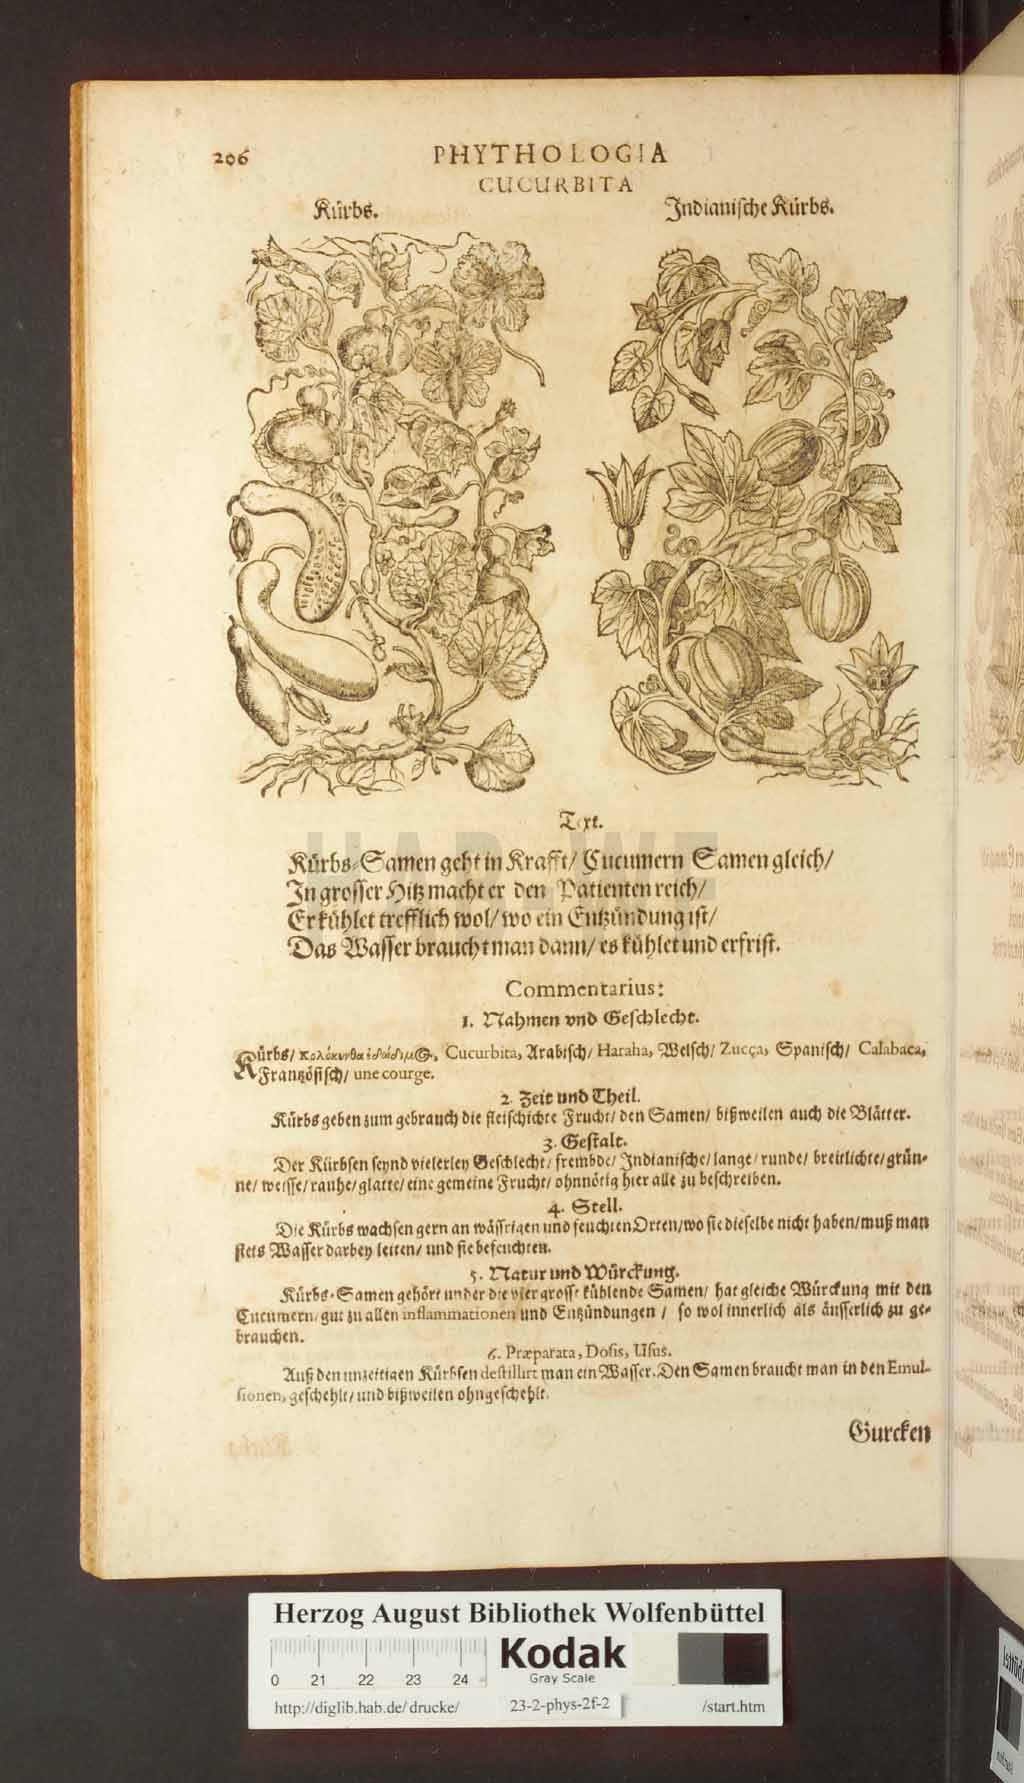 206
PHYTHOLOGIA
CUCURBITA
Kürbs.
Indianische Kürbs.
Text.
Kürbs-Samen geht in Krafft/ Cucumern Samen gleich/
In grosser Hitz macht er den Patienten reich/
Er kühlet trefflich wol/ wo ein Entzündung ist/
Das Wasser braucht man dann/ es kühlet und erfrist.
Commentarius:
1. Nahmen vnd Geschlecht.
Kürbs/ κολόκυνθα ἐδώδιμος, Cucurbita, Arabisch/ Haraha, Welsch/ Zucça, Spanisch/ Calabaca,
Frantzösisch/ une courge.
2. Zeit und Theil.
Kürbs geben zum gebrauch die fleischichte Frucht/ den Samen/ bißweilen auch die Blätter.
3. Gestalt.
Der Kürbsen seynd vielerley Geschlecht/ frembde/ Indianische/ lange/ runde/ breitlichte/ grün-
ne/ weisse/ rauhe/ glatte/ eine gemeine Frucht/ ohnnötig hier alle zu beschreiben.
4. Stell.
Die Kürbs wachsen gern an wässrigen und feuchten Orten/ wo sie dieselbe nicht haben/ muß man
stets Wasser darbey leiten/ und sie befeuchten.
5. Natur und Würckung.
Kürbs-Samen gehört under die vier grosse kühlende Samen/ hat gleiche Würckung mit den
Cucumern/ gut zu allen inflammationen und Entzündungen / so wol innerlich als äusserlich zu ge-
brauchen.
6. Præparata, Dosis, Usus.
Auß den unzeitigen Kürbsen destillirt man ein Wasser. Den Samen braucht man in den Emul-
sionen, geschehlt/ und bißweilen ohngeschehlt.
Gurcken
Herzog August Bibliothek Wolfenbüttel
Kodak
Gray Scale
0 21 22 23 24
http://diglib.hab.de/drucke/ 23-2-phys-2f-2 /start.htm